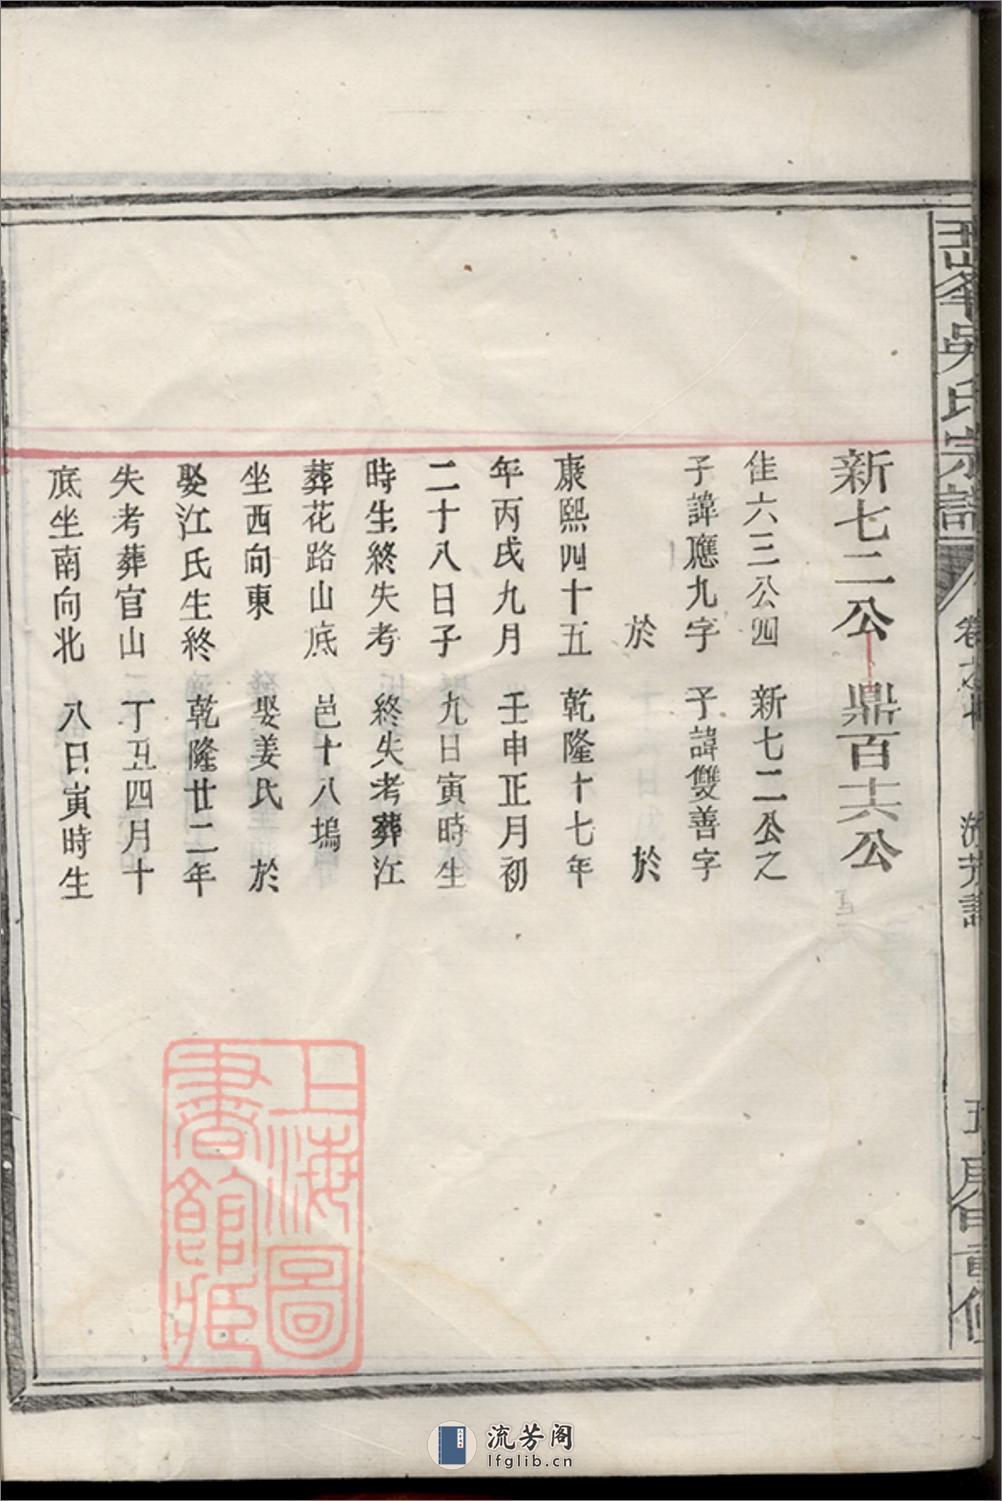 峯吳氏宗譜
新七二公
佳六三公四
子諱應九字
於
康熙四十五
年丙戌九月
二十八日子
時生終失考
葬花路山底
坐西向東
娶江氏生終
失考葬官山
底坐南向北
鼎百十六公
新七二公之
子諱雙善字
於
乾隆十七年
壬申正月初
九日寅時生
終失考葬江
邑十八塢
娶姜氏 於
乾隆廿二年
丁丑四月十
八日寅時生
上海圖
書館藏
流芳阁
lfglib.cn